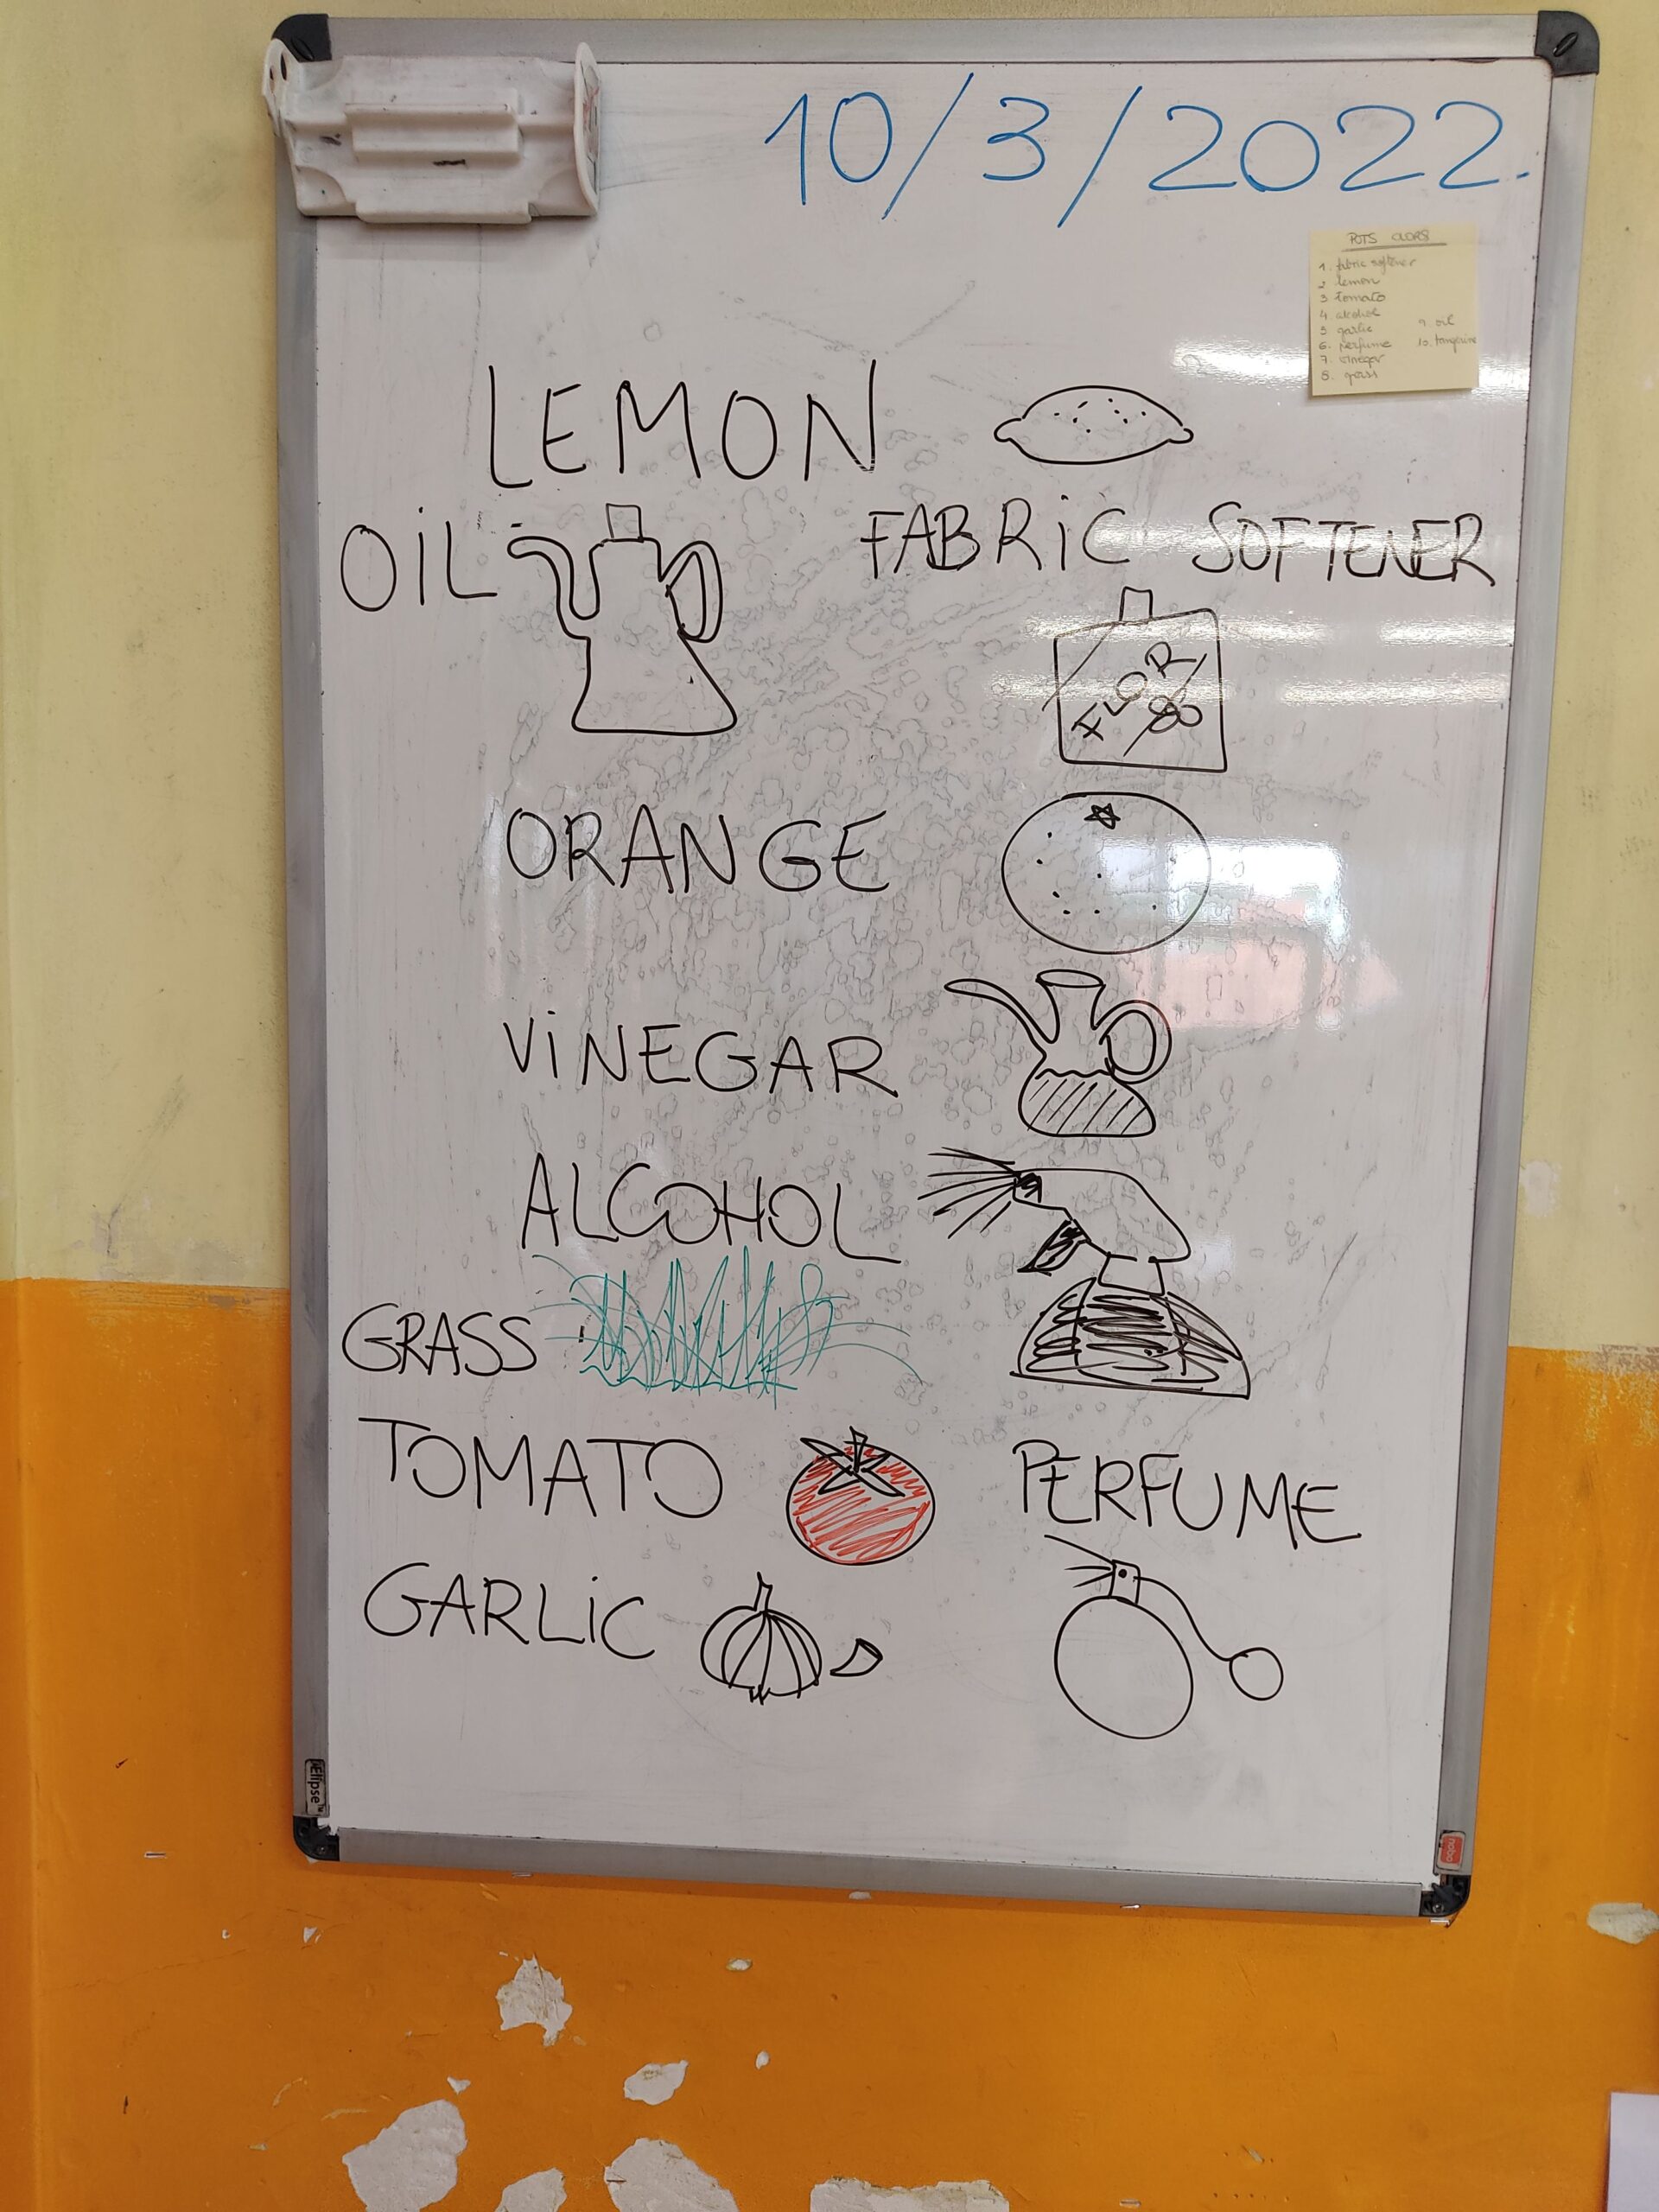 10/3/2022.
POTS ODORS
1. fabric softener
2 lemon
3 tomato
4 alcohol
5 garlic
9. oil
6. perfume
10. tangerine
7. vinegar
8. grass
LEMON
OiL
FABRiC SOFTENER
FLOR
ORANGE
ViNEGAR
ALCOHOL
GRASS
TOMATO
PERFUME
GARLiC
Elipse™
nobo